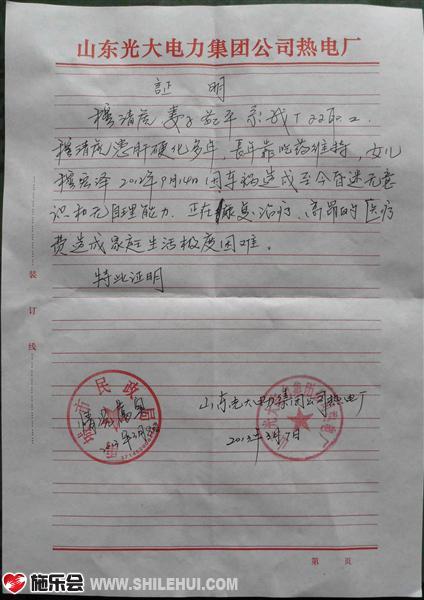 山东光大电力集团公司热电厂
证 明
清虎 姜 平系我厂双职工.
清虎患肝硬化多年,长年靠吃药维持,女儿
宏泽2012年9月14日因车祸造成至今昏迷无意
识和无自理能力.正在康复治疗.高昂的医疗
费造成家庭生活极度困难。
特此证明
装
订
线
市民政局
情况属实
2013年3月8日
山东光大电力集团公司热电厂
2013年3月7日
第 页
施乐会
WWW.SHILEHUI.COM